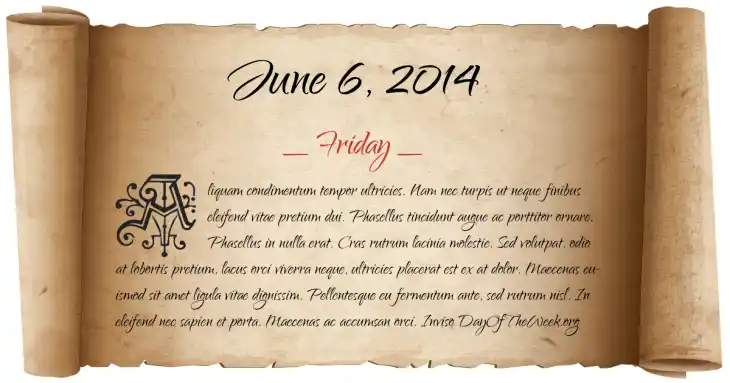 June 6, 2014
_ Friday _
Aliquam condimentum tempor ultricies. Nam nec turpis ut neque finibus
eleifend vitae pretium dui. Phasellus tincidunt augue ac porttitor ornare.
Phasellus in nulla erat. Cras rutrum lacinia molestie. Sed volutpat, odio
at lobortis pretium, lacus orci viverra neque, ultricies placerat est ex at dolor. Maecenas eu-
ismod sit amet ligula vitae dignissim. Pellentesque eu fermentum ante, sed rutrum nisl. In
eleifend nec sapien et porta. Maecenas ac accumsan orci. Inviso DayOfTheWeek.org